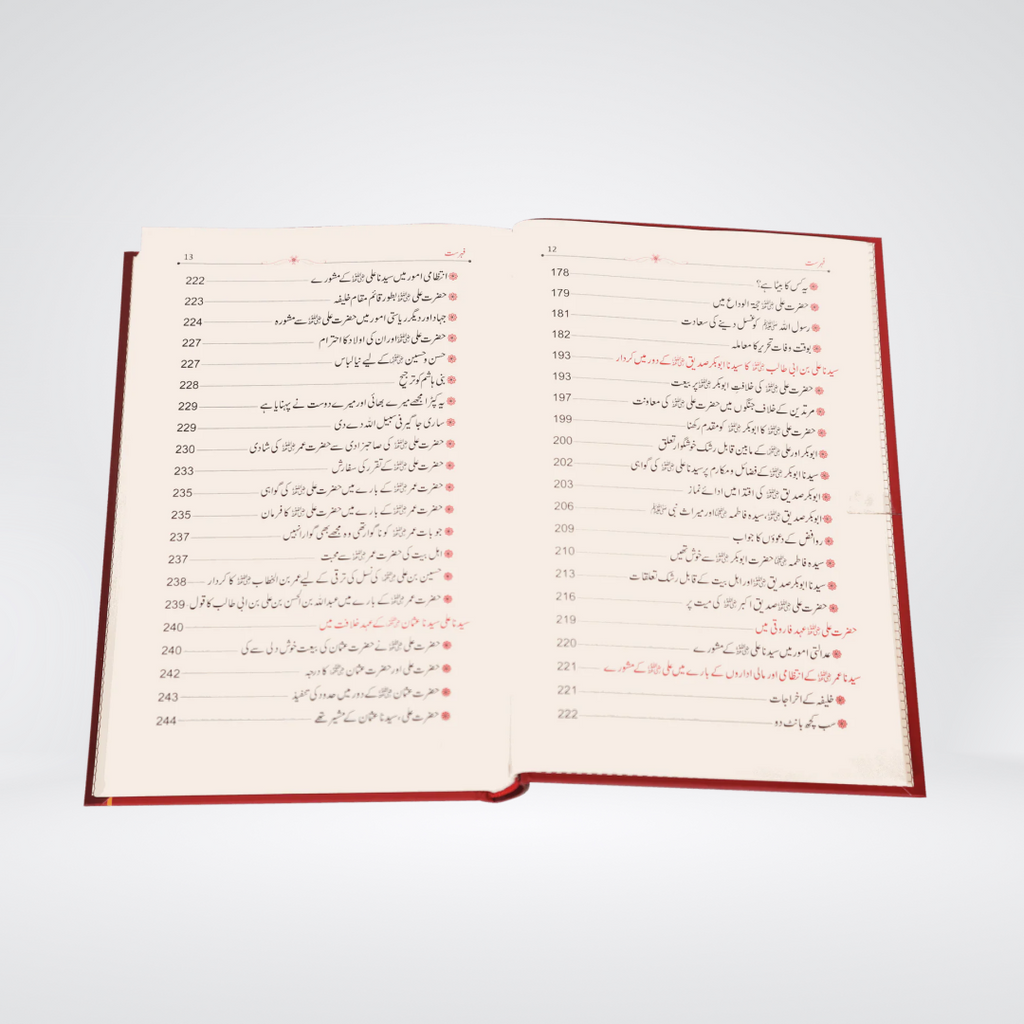 12
فہرست
یہ کس کا بیٹا ہے؟ 178
حضرت علی رضی اللہ عنہ حجۃ الوداع میں 179
رسول اللہ ﷺ کو غسل دینے کی سعادت 181
بوقت وفات تحریر کا معاملہ 182
سیدنا علی بن ابی طالب رضی اللہ عنہ کا سیدنا ابوبکر صدیق رضی اللہ عنہ کے دور میں کردار 193
حضرت علی رضی اللہ عنہ کی خلافتِ ابوبکر رضی اللہ عنہ پر بیعت 193
مرتدین کے خلاف جنگوں میں حضرت علی رضی اللہ عنہ کی معاونت 197
حضرت علی رضی اللہ عنہ کا ابوبکر رضی اللہ عنہ کو مقدم رکھنا 199
ابوبکر اور علی رضی اللہ عنہما کے مابین قابل رشک خوشگوار تعلق 200
سیدنا ابوبکر رضی اللہ عنہ کے فضائل و مکارم پر سیدنا علی رضی اللہ عنہ کی گواہی 202
ابوبکر صدیق رضی اللہ عنہ کی اقتدا میں ادائے نماز 203
ابوبکر صدیق رضی اللہ عنہ، سیدہ فاطمہ رضی اللہ عنہا اور میراث نبی ﷺ 206
روافض کے دعوؤں کا جواب 209
سیدہ فاطمہ رضی اللہ عنہا حضرت ابوبکر رضی اللہ عنہ سے خوش تھیں 210
سیدنا ابوبکر صدیق رضی اللہ عنہ اور اہل بیت کے قابل رشک تعلقات 213
حضرت علی رضی اللہ عنہ صدیق اکبر رضی اللہ عنہ کی میت پر 216
حضرت علی رضی اللہ عنہ عہد فاروقی میں 219
عدالتی امور میں سیدنا علی رضی اللہ عنہ کے مشورے 220
سیدنا عمر رضی اللہ عنہ کے انتظامی اور مالی اداروں کے بارے میں علی رضی اللہ عنہ کے مشورے 221
خلیفہ کے اخراجات 221
سب کچھ بانٹ دو 222
13
فہرست
انتظامی امور میں سیدنا علی رضی اللہ عنہ کے مشورے 222
حضرت علی رضی اللہ عنہ بطور قائم مقام خلیفہ 223
جہاد اور دیگر ریاستی امور میں حضرت علی رضی اللہ عنہ سے مشورہ 224
حضرت علی رضی اللہ عنہ اور ان کی اولاد کا احترام 227
حسن و حسین رضی اللہ عنہما کے لیے نیا لباس 227
بنی ہاشم کو ترجیح 228
یہ کپڑا مجھے میرے بھائی اور میرے دوست نے پہنایا ہے 229
ساری جاگیر فی سبیل اللہ دے دی 229
حضرت علی رضی اللہ عنہ کی صاحبزادی سے حضرت عمر رضی اللہ عنہ کی شادی 230
حضرت علی رضی اللہ عنہ کے تقرر کی سفارش 233
حضرت عمر رضی اللہ عنہ کے بارے میں حضرت علی رضی اللہ عنہ کی گواہی 235
حضرت عمر رضی اللہ عنہ کے بارے میں حضرت علی رضی اللہ عنہ کا فرمان 235
جو بات عمر رضی اللہ عنہ کو ناگوار تھی وہ مجھے بھی گوارا نہیں 237
اہل بیت کی حضرت عمر رضی اللہ عنہ سے محبت 237
حسین بن علی رضی اللہ عنہ کی نسل کی ترقی کے لیے عمر بن الخطاب رضی اللہ عنہ کا کردار 238
حضرت عمر رضی اللہ عنہ کے بارے میں عبداللہ بن الحسن بن علی بن ابی طالب کا قول 239
سیدنا علی سیدنا عثمان رضی اللہ عنہ کے عہد خلافت میں 240
حضرت علی رضی اللہ عنہ نے حضرت عثمان کی بیعت خوش دلی سے کی 240
حضرت علی اور حضرت عثمان رضی اللہ عنہما کا درجہ 242
حضرت عثمان رضی اللہ عنہ کے دور میں حدود کی تنفیذ 243
حضرت علی، سیدنا عثمان کے مشیر تھے 244